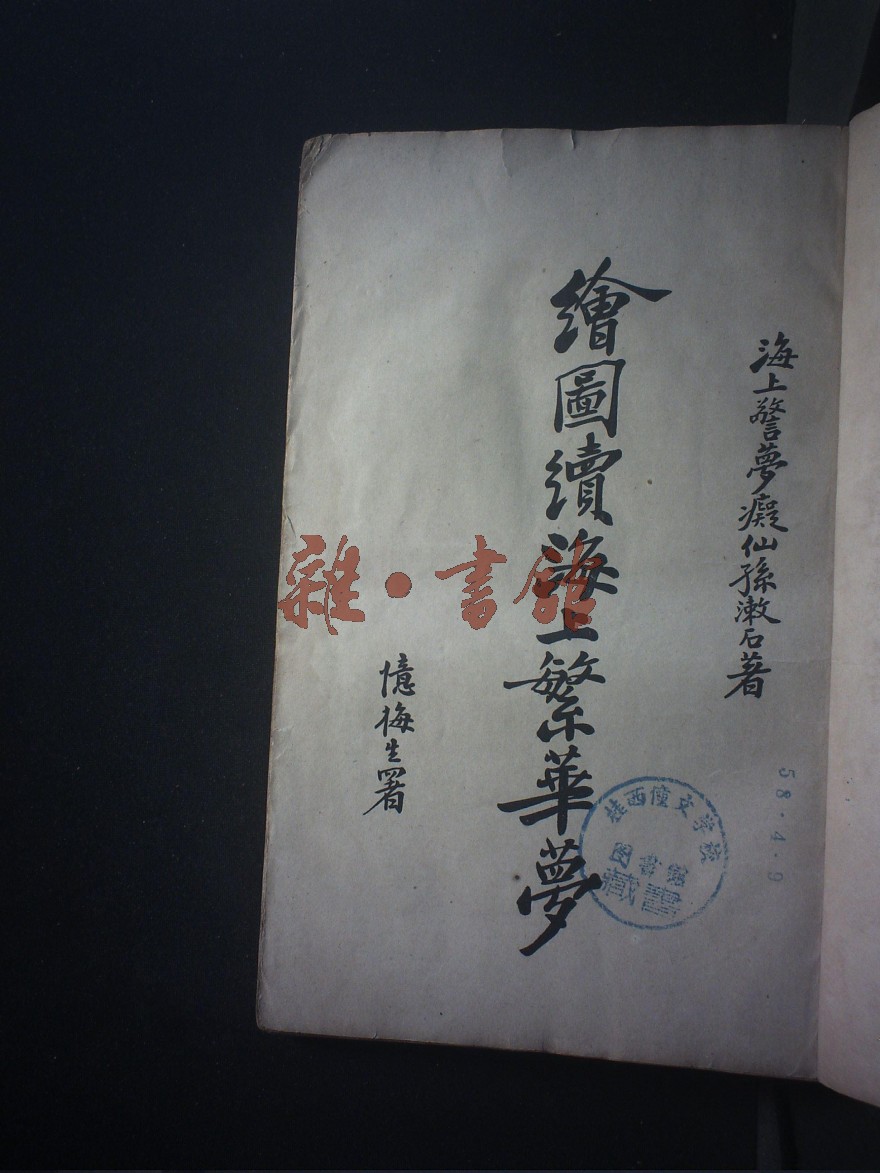 海上警夢癡仙孫漱石著
繪圖續海上繁華夢
憶梅生署
雜·書館
桂西僮文学校
图書館
藏書
58.4.9